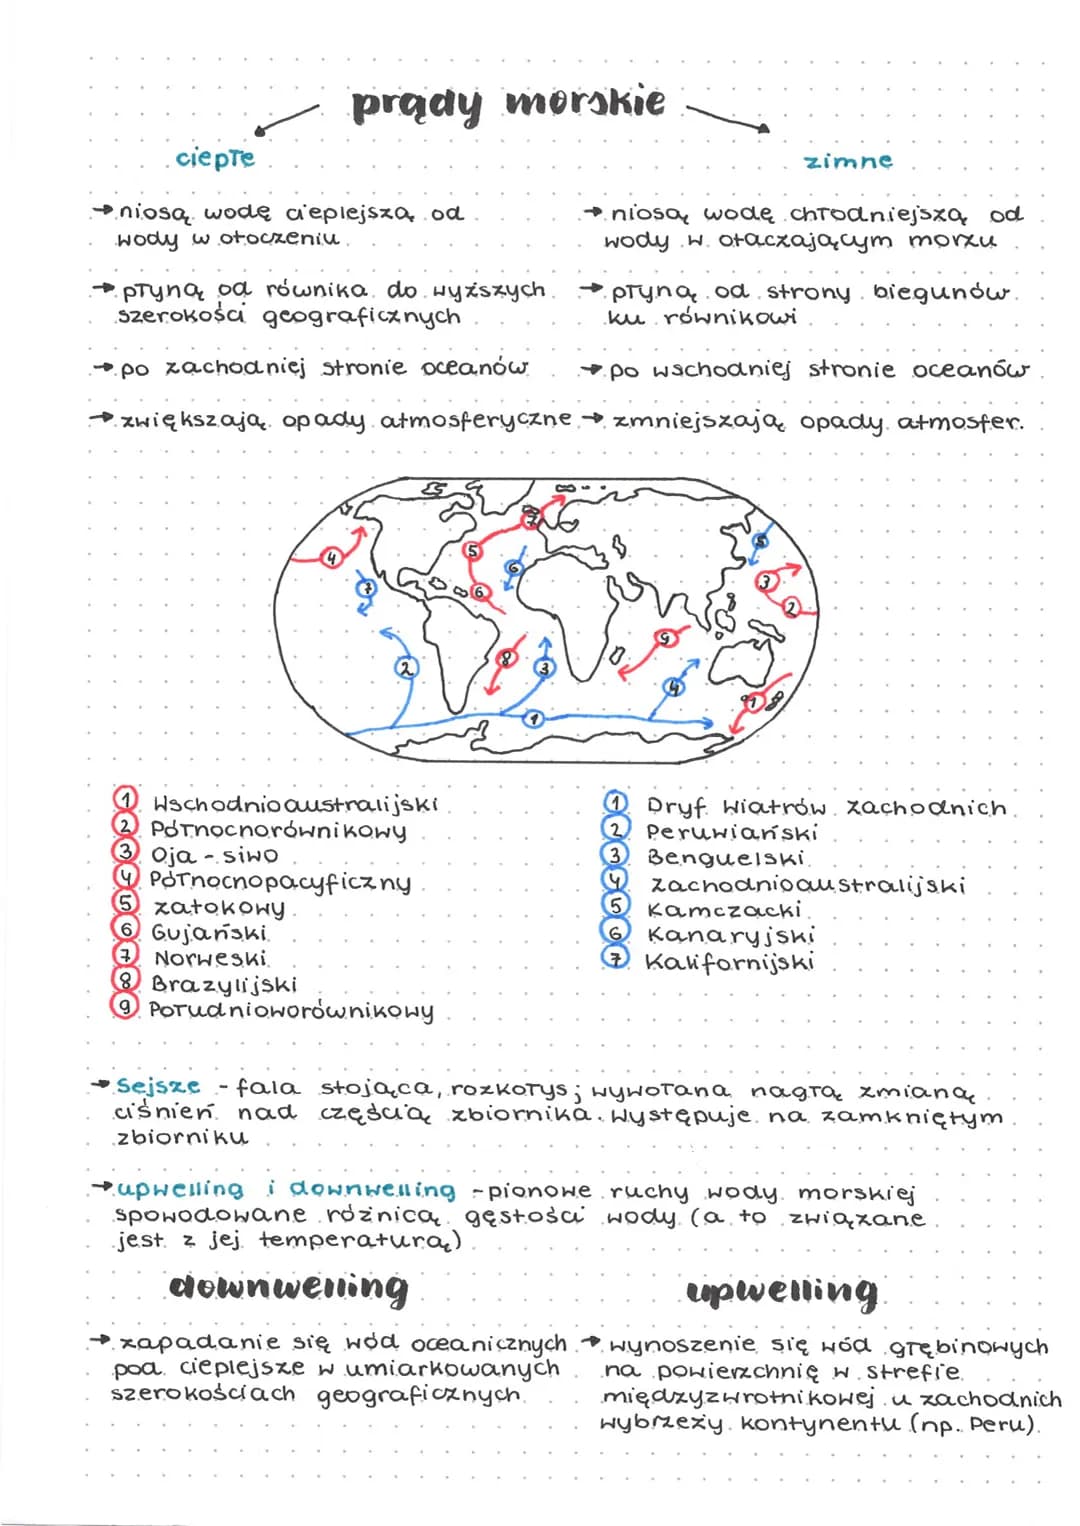 prądy morskie
ciepłe
zimne
→ niosą wodę cieplejszą od
wody w otoczeniu
→ płyną od równika do wyższych
szerokości geograficznych
→ po zachodniej stronie oceanów
→ zwiększają opady atmosferyczne
→ niosą wodę chłodniejszą od
wody w otaczającym morzu
→ płyną od strony biegunów
ku równikowi
→ po wschodniej stronie oceanów
→ zmniejszają opady atmosfer.
7
4
5
5
6
7
6
3
2
9
8
2
3
4
1
1
1 Wschodnioaustralijski
2 Północnorównikowy
3 Oja - siwo
4 Północnopacyficzny
5 zatokowy
6 Gujański
7 Norweski
8 Brazylijski
9 Południoworównikowy
1 Dryf Wiatrów zachodnich
2 Peruwiański
3 Benguelski
4 zachodnioaustralijski
5 Kamczacki
6 Kanaryjski
7 Kalifornijski
→ Sejsze - fala stojąca, rozkołys; wywołana nagłą zmianą
ciśnień nad częścią zbiornika. Występuje na zamkniętym
zbiorniku
→ upwelling i downwelling - pionowe ruchy wody morskiej
spowodowane różnicą gęstości wody (a to związane
jest z jej temperaturą)
downwelling
→ zapadanie się wód oceanicznych
pod cieplejsze w umiarkowanych
szerokościach geograficznych
upwelling
→ wynoszenie się wód głębinowych
na powierzchnię w strefie
międzyzwrotnikowej u zachodnich
wybrzeży kontynentu (np. Peru)